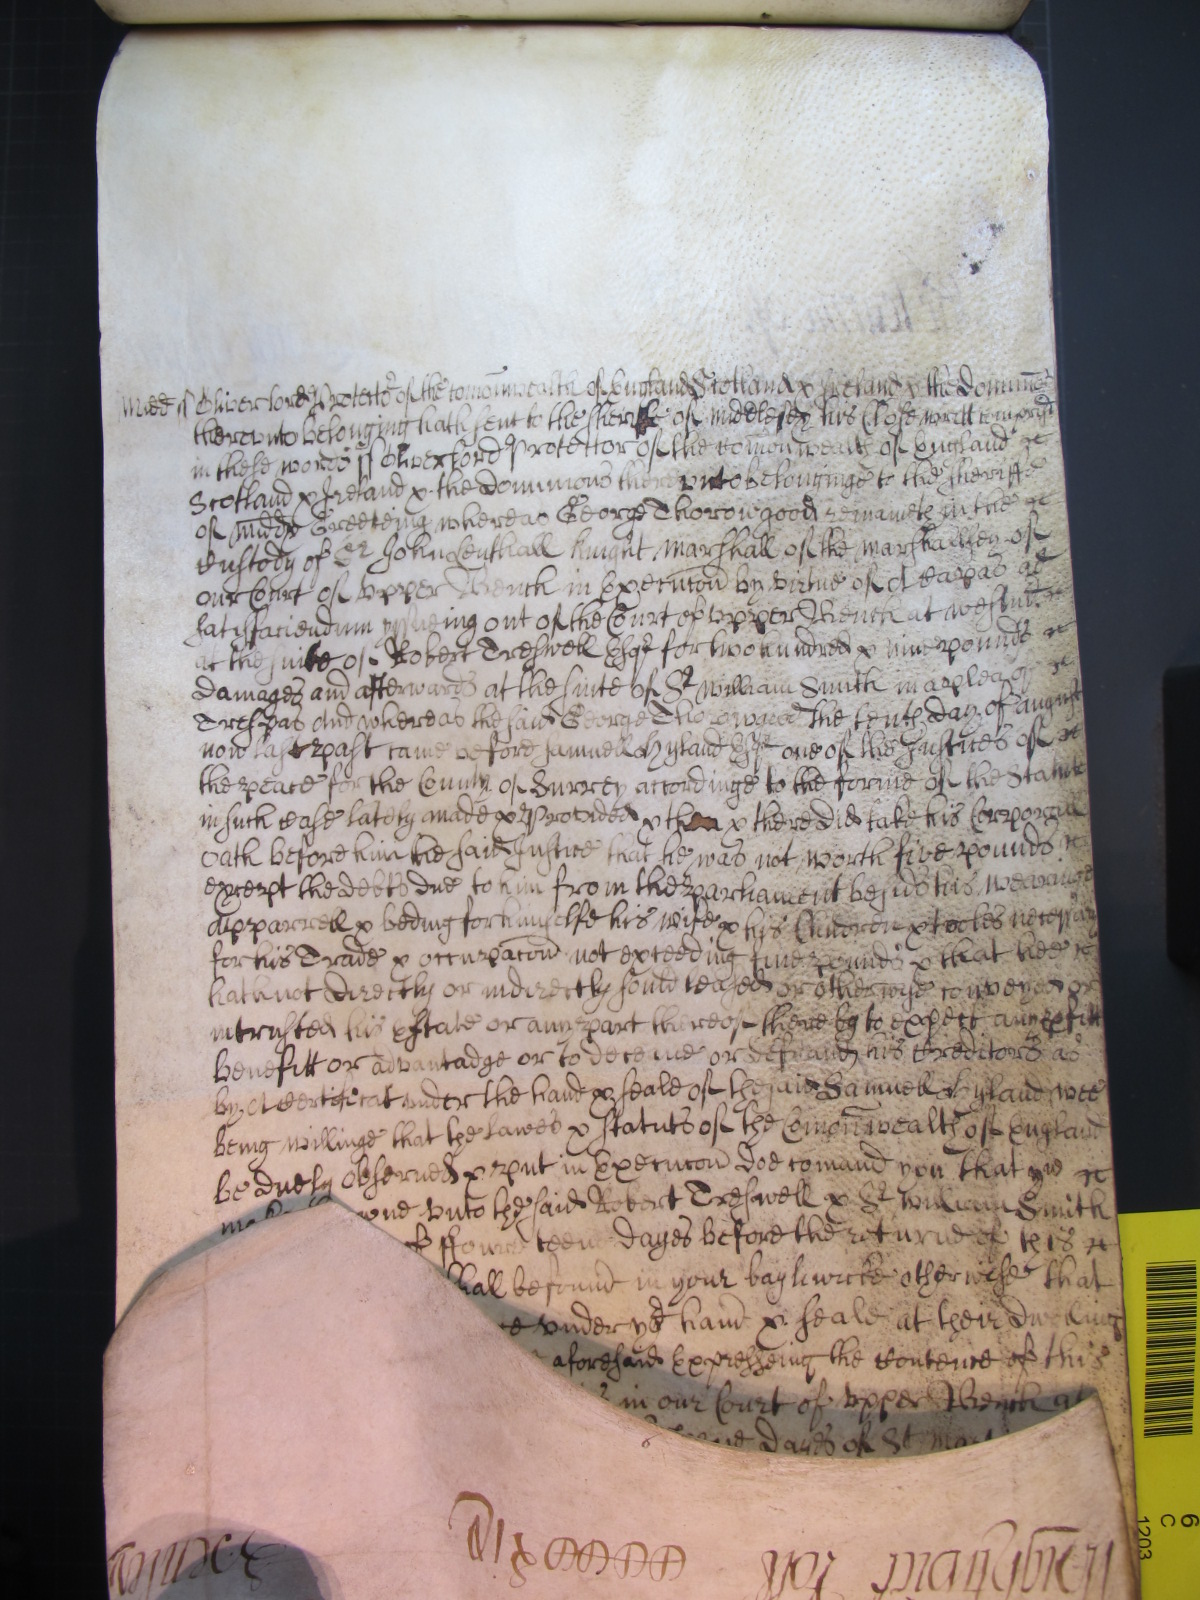 Midd ss Oliver Lord Protector of the comonwealth of England Scotland & Ireland & the dominions
thereunto belonging hath sent to the Sheriffe of Middlesex his Close writt comprised
in these words ss Oliver Lord Protector of the comonwealth of England
Scotland & Ireland & the dominions thereunto belonginge to the Sheriffe
of Midds Greeting whereas George Thorowgood remaineth in the
Custody of Sr John Lenthall Knight Marshall of the Marshallsey of
our Court of upper Bench in Execucon by virtue of A Capias ad
satisfaciendum yssueing out of the Court of upper Bench at Westmr
at the suite of Robert Treswell Esqr for two hundred & nine pounds
damages and afterwards at the suite of Sr William Smith in a plea of
Trespas And whereas the said George Thorowgood the tenth day of August
now last past came before Samuell Hyland Esqr one of the Justices of
the peace for the County of Surrey accordinge to the forme of the Statute
in such case lately made & Provided & then & there did take his Corporall
oath before him the said Justice that he was not worth five pounds
except the debts due to him from the parliament besids his wearinge
apparrell & beding for himselfe his wife & his Children & tooles necessary
for his Trade & occupacon not exceeding five pounds & that hee
hath not directly or indirectly sould leased or otherwise conveyed or
intrusted his Estate or any part thereof thereby to expect any pfitt
benefitt or advantadge or to deceive or defraud his Creditors as
by A certificat under the hand & seale of the said Samuell Hyland wee
being willinge that the Lawes & Statuts of the Comonwealth of England
be duely observed & put in Execucon doe comand you that you
knowne unto the said Robert Treswell & Sr William Smith
of ffourteene dayes before the returne of this
shall be found in your bayliwicke otherwise that
under yor hand & seale at their dwelling
aforesaid Expresseing the contence of this
in our Court of upper Bench at
dayes of St